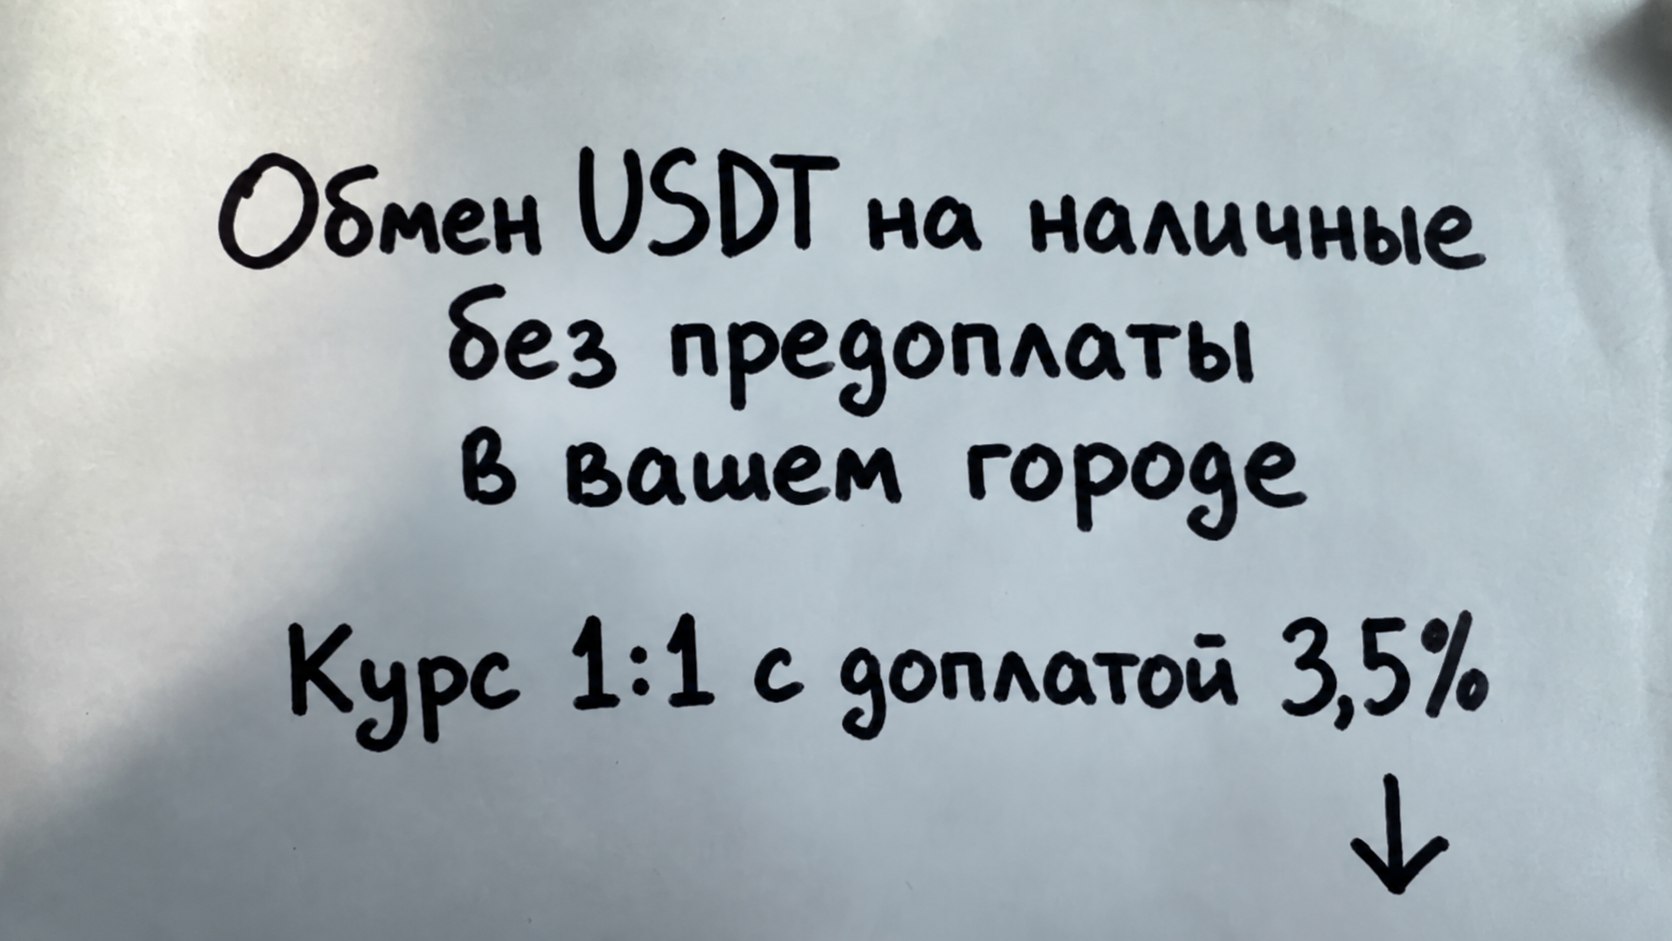 Обмен USDT на наличные
без предоплаты
в вашем городе
Курс 1:1 с доплатой 3,5%
↓